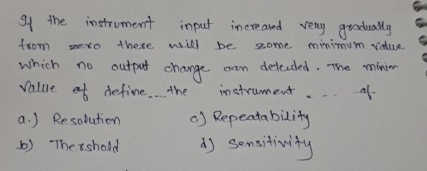 If the instrument input increased very gradually
from zero there will be some minimum value
which no output change can detected. The minim
value of define...the instrument . . . of.
a.) Resolution c) Repeatability
b) Thershold d) Sensitivity